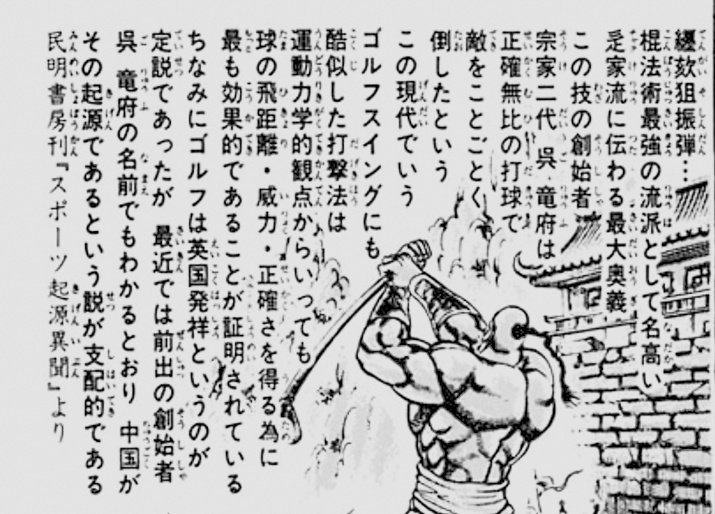 纒欬狙振弾…
棍法術最強の流派として名高い
辵家流に伝わる最大奥義
この技の創始者
宗家二代 呉 竜府は
正確無比の打球で
敵をことごとく
倒したという
この現代でいう
ゴルフスイングにも
酷似した打撃法は
運動力学的観点からいっても
球の飛距離・威力・正確さを得る為に
最も効果的であることが証明されている
ちなみにゴルフは英国発祥というのが
定説であったが 最近では前出の創始者
呉 竜府の名前でもわかるとおり 中国が
その起源であるという説が支配的である
民明書房刊『スポーツ起源異聞』より